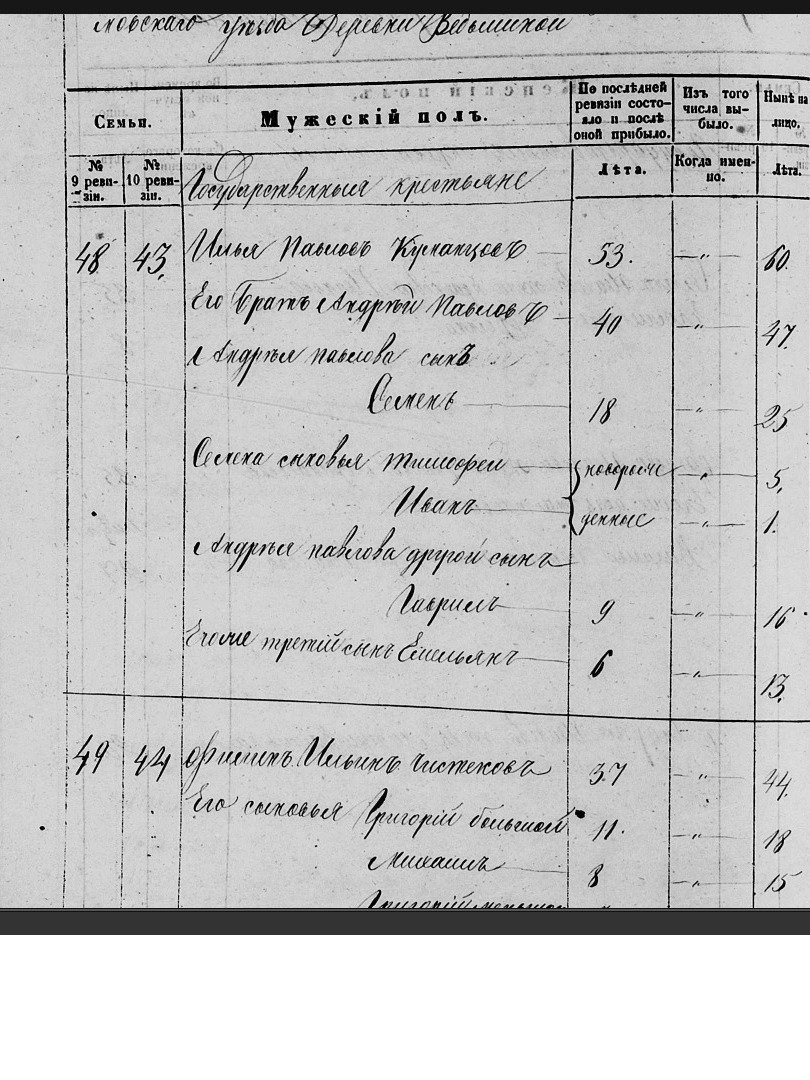 мовскаго уезда Деревни Ведьминой
Семьи.
Мужескій полъ.
По послѣдней ревизіи состояло и послѣ оной прибыло.
Изъ того числа выбыло.
Нынѣ на лицо,
№ 9 ревизіи.
№ 10 ревизіи.
Государственныя крестьяне
Лѣта.
Когда именно.
Лѣта.
48 43. Илья Павловъ 53. —„— 60.
Его Братъ Андрѣй Павловъ 40 —„— 47.
Андрѣя павлова сынъ
Семенъ 18 —„— 25
Семена сыновья тимофеи новорож —„— 5.
Иванъ денные —„— 1.
Андрѣя павлова другой сынъ
Гаврилъ 9 —„— 16.
Егоже третій сынъ Емельянъ 6 —„— 13.
49 44 Филипъ Ильинъ 37 —„— 44.
Его сыновья Григорій большой 11. —„— 18
Михаилъ 8 —„— 15
Григорій меньшой